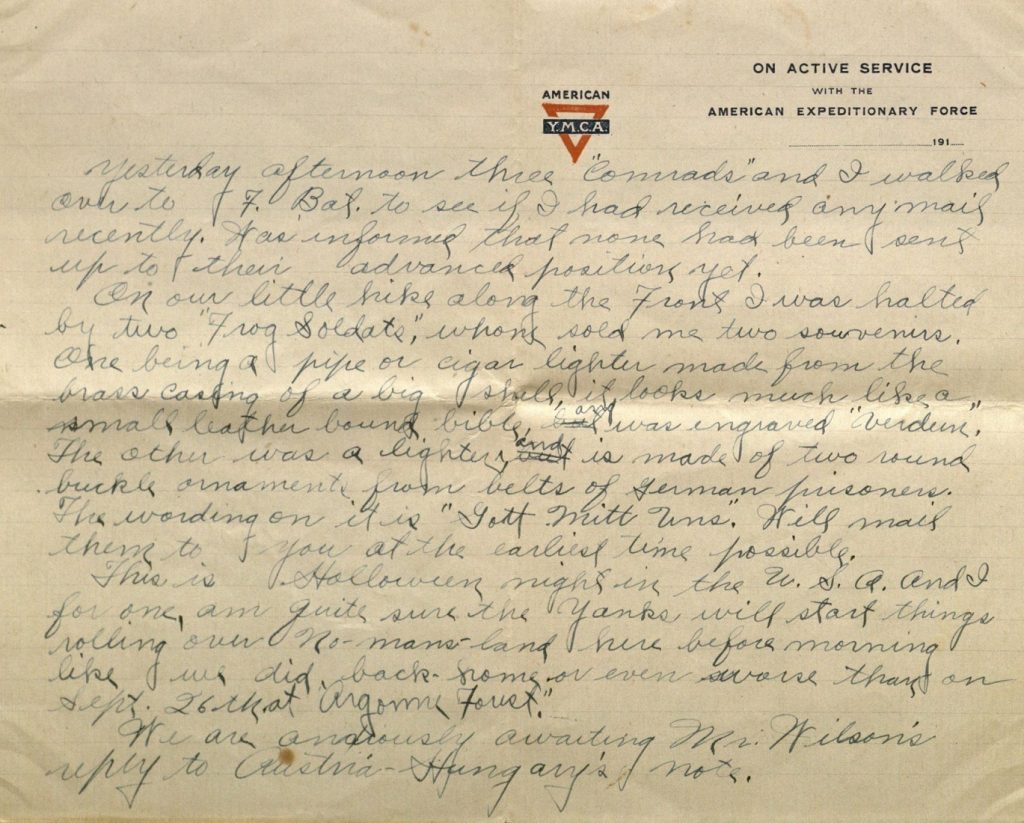 ON ACTIVE SERVICE
WITH THE
AMERICAN EXPEDITIONARY FORCE
AMERICAN
Y.M.C.A.
191
Yesterday afternoon three "Comrads" and I walked
over to F. Bat. to see if I had received any mail
recently. Was informed that none had been sent
up to their advanced position yet.
On our little hike along the Front I was halted
by two "Frog Soldats", whom sold me two souvenirs.
One being a pipe or cigar lighter made from the
brass casing of a big shell, it looks much like a
small leather bound bible, and was engraved "Verdun".
The other was a lighter, and is made of two round
buckle ornaments from belts of German prisoners.
The wording on it is "Gott Mitt Uns". Will mail
them to you at the earliest time possible.
This is Halloween night in the U. S. A. And I
for one, am quite sure the Yanks will start things
rolling over No-mans-land here before morning
like we did back home or even worse than on
Sept. 26th at "Argonne Forest."
We are anxiously awaiting Mr. Wilson's
reply to Austria-Hungary's note.